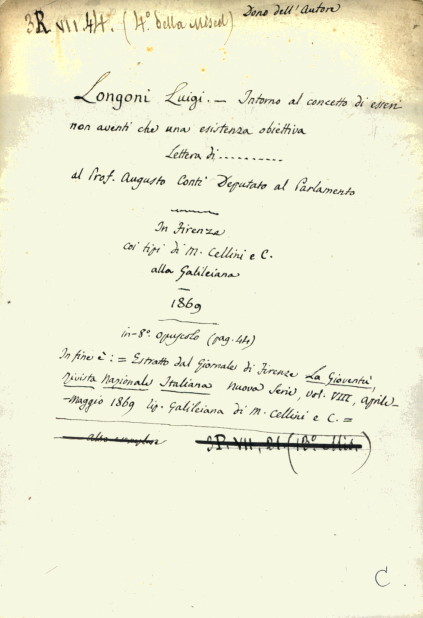 3R VII.44. (4º della Miscel)
Dono dell'Autore
Longoni Luigi. — Intorno al concetto di esseri
non aventi che una esistenza obiettiva
Lettera di ..........
al Prof. Augusto Conti Deputato al Parlamento
In Firenze
coi tipi di M. Cellini e C.
alla Galileiana
1869
in-8º. opuscolo (pag. 44)
In fine è: = Estratto dal Giornale di Firenze La Gioventù,
Rivista Nazionale Italiana Nuova Serie, vol. VIII, Aprile-
-Maggio 1869 tip. Galileiana di M. Cellini e C. =
altro esemplare 3R. VII, 21. (18º. Mis.)
C